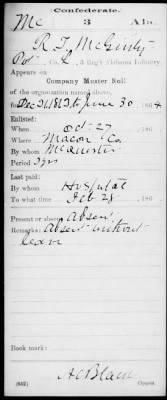 Confederate.
Mc 3 Ala.
R. T. McGinty
Pvt, Co. 3 Reg't Alabama Infantry.
Appears on
Company Muster Roll
of the organization named above,
for Dec 31 1863 to June 30, 1864.
Enlisted:
When Oct 27, 186
Where Macon Co.
By whom McQuister
Period 3 yrs
Last paid:
By whom Hospital
To what time Feb 28, 186
Present or absent Absent
Remarks: Absent without
leave
Book mark:
(642) Copyist.